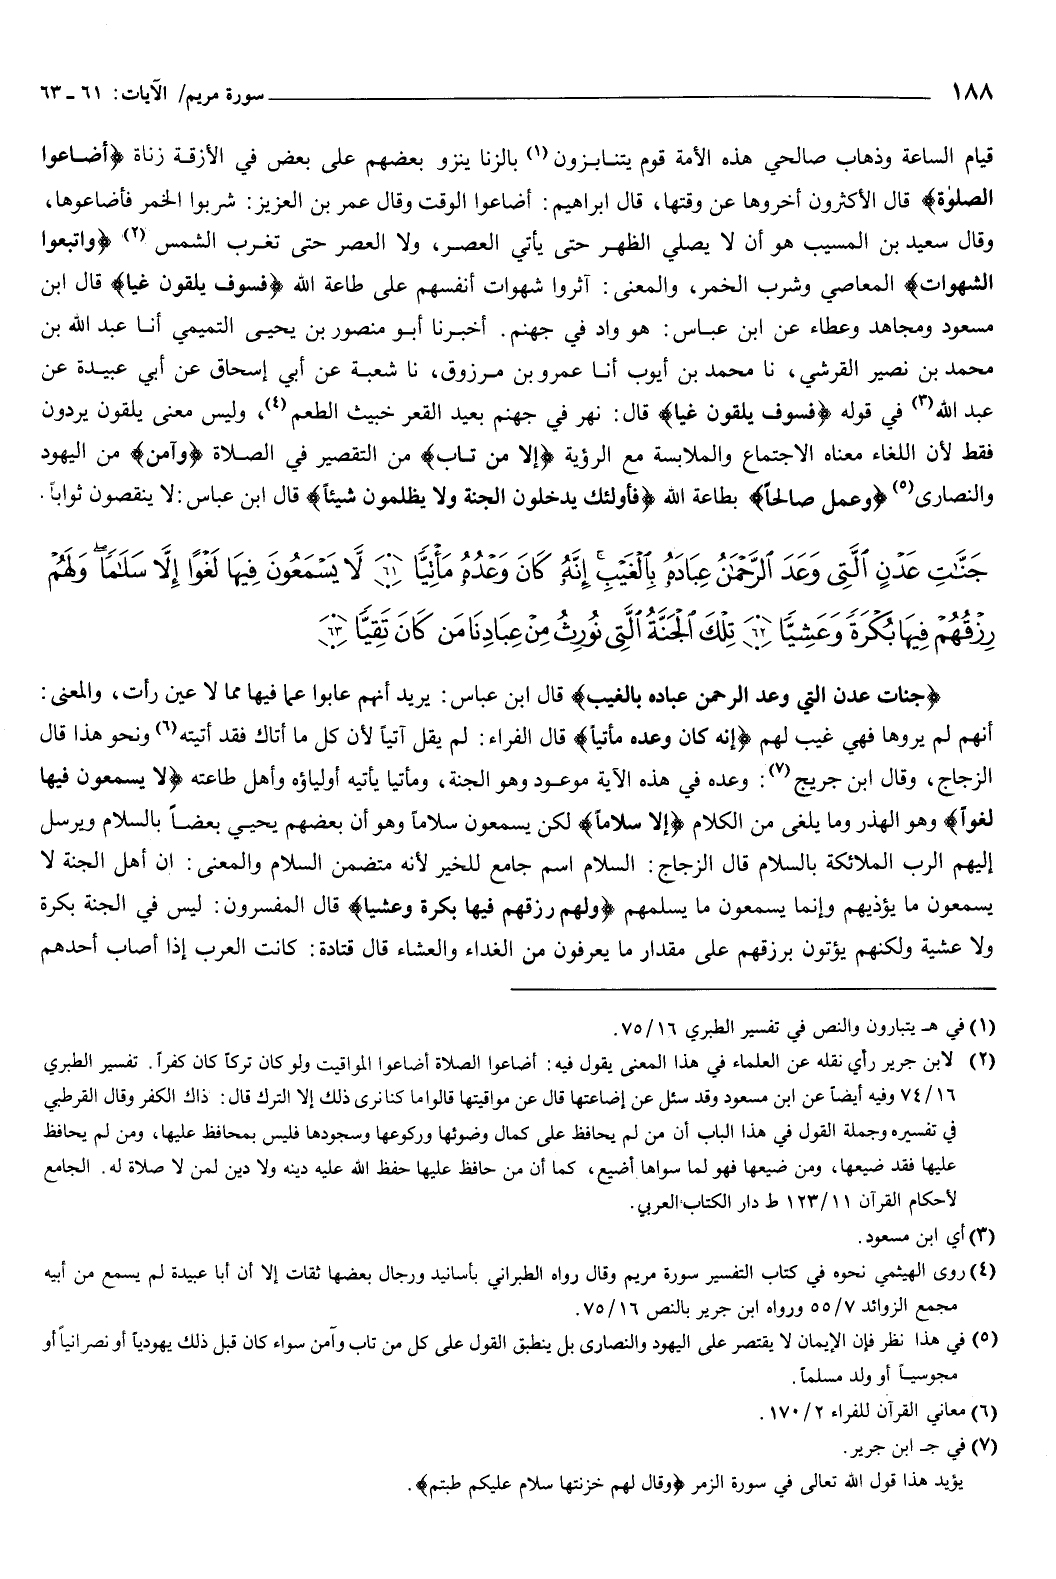 ١٨٨ سورة مريم/ الآيات: ٦١ - ٦٣
قيام الساعة وذهاب صالحي هذه الأمة قوم يتنابزون(١) بالزنا ينزو بعضهم على بعض في الأزقة زناة ﴿أضاعوا
الصلوٰة﴾ قال الأكثرون أخروها عن وقتها، قال ابراهيم: أضاعوا الوقت وقال عمر بن العزيز: شربوا الخمر فأضاعوها،
وقال سعيد بن المسيب هو أن لا يصلي الظهر حتى يأتي العصر، ولا العصر حتى تغرب الشمس (٢) ﴿واتبعوا
الشهوات﴾ المعاصي وشرب الخمر، والمعنى: آثروا شهوات أنفسهم على طاعة الله ﴿فسوف يلقون غيا﴾ قال ابن
مسعود ومجاهد وعطاء عن ابن عباس: هو واد في جهنم. أخبرنا أبو منصور بن يحيى التميمي أنا عبد الله بن
محمد بن نصير القرشي، نا محمد بن أيوب أنا عمرو بن مرزوق، نا شعبة عن أبي إسحاق عن أبي عبيدة عن
عبد الله(٣) في قوله ﴿فسوف يلقون غيا﴾ قال: نهر في جهنم بعيد القعر خبيث الطعم(٤)، وليس معنى يلقون يردون
فقط لأن اللغاء معناه الاجتماع والملابسة مع الرؤية ﴿إلا من تاب﴾ من التقصير في الصلاة ﴿وآمن﴾ من اليهود
والنصارى(٥) ﴿وعمل صالحاً﴾ بطاعة الله ﴿فأولئك يدخلون الجنة ولا يظلمون شيئاً﴾ قال ابن عباس: لا ينقصون ثواباً.
جَنَّٰتِ عَدْنٍ ٱلَّتِى وَعَدَ ٱلرَّحْمَٰنُ عِبَادَهُۥ بِٱلْغَيْبِ ۚ إِنَّهُۥ كَانَ وَعْدُهُۥ مَأْتِيًّا ﴿٦١﴾ لَّا يَسْمَعُونَ فِيهَا لَغْوًا إِلَّا سَلَٰمًا ۖ وَلَهُمْ
رِزْقُهُمْ فِيهَا بُكْرَةً وَعَشِيًّا ﴿٦٢﴾ تِلْكَ ٱلْجَنَّةُ ٱلَّتِى نُورِثُ مِنْ عِبَادِنَا مَن كَانَ تَقِيًّا ﴿٦٣﴾
﴿جنات عدن التي وعد الرحمن عباده بالغيب﴾ قال ابن عباس: يريد أنهم عابوا عما فيها مما لا عين رأت، والمعنى:
أنهم لم يروها فهي غيب لهم ﴿إنه كان وعده مأتياً﴾ قال الفراء: لم يقل آتياً لأن كل ما أتاك فقد أتيته(٦) ونحو هذا قال
الزجاج، وقال ابن جريج(٧): وعده في هذه الآية موعود وهو الجنة، ومأتيا يأتيه أولياؤه وأهل طاعته ﴿لا يسمعون فيها
لغواً﴾ وهو الهذر وما يلغى من الكلام ﴿إلا سلاماً﴾ لكن يسمعون سلاماً وهو أن بعضهم يحيي بعضاً بالسلام ويرسل
إليهم الرب الملائكة بالسلام قال الزجاج: السلام اسم جامع للخير لأنه متضمن السلام والمعنى: ان أهل الجنة لا
يسمعون ما يؤذيهم وإنما يسمعون ما يسلمهم ﴿ولهم رزقهم فيها بكرة وعشيا﴾ قال المفسرون: ليس في الجنة بكرة
ولا عشية ولكنهم يؤتون برزقهم على مقدار ما يعرفون من الغداء والعشاء قال قتادة: كانت العرب إذا أصاب أحدهم
(١) في هـ يتبارون والنص في تفسير الطبري ٧٥/١٦.
(٢) لابن جرير رأي نقله عن العلماء في هذا المعنى يقول فيه: أضاعوا الصلاة أضاعوا المواقيت ولو كان تركاً كان كفراً. تفسير الطبري
٧٤/١٦ وفيه أيضاً عن ابن مسعود وقد سئل عن إضاعتها قال عن مواقيتها قالوا ما كنا نرى ذلك إلا الترك قال: ذاك الكفر وقال القرطبي
في تفسيره وجملة القول في هذا الباب أن من لم يحافظ على كمال وضوئها وركوعها وسجودها فليس بمحافظ عليها، ومن لم يحافظ
عليها فقد ضيعها، ومن ضيعها فهو لما سواها أضيع، كما أن من حافظ عليها حفظ الله عليه دينه ولا دين لمن لا صلاة له. الجامع
لأحكام القرآن ١٢٣/١١ ط دار الكتاب العربي.
(٣) أي ابن مسعود.
(٤) روى الهيثمي نحوه في كتاب التفسير سورة مريم وقال رواه الطبراني بأسانيد ورجال بعضها ثقات إلا أن أبا عبيدة لم يسمع من أبيه
مجمع الزوائد ٥٥/٧ ورواه ابن جرير بالنص ٧٥/١٦.
(٥) في هذا نظر فإن الإيمان لا يقتصر على اليهود والنصارى بل ينطبق القول على كل من تاب وآمن سواء كان قبل ذلك يهودياً أو نصرانياً أو
مجوسياً أو ولد مسلماً.
(٦) معاني القرآن للفراء ١٧٠/٢.
(٧) في جـ ابن جرير.
يؤيد هذا قول الله تعالى في سورة الزمر ﴿وقال لهم خزنتها سلام عليكم طبتم﴾.